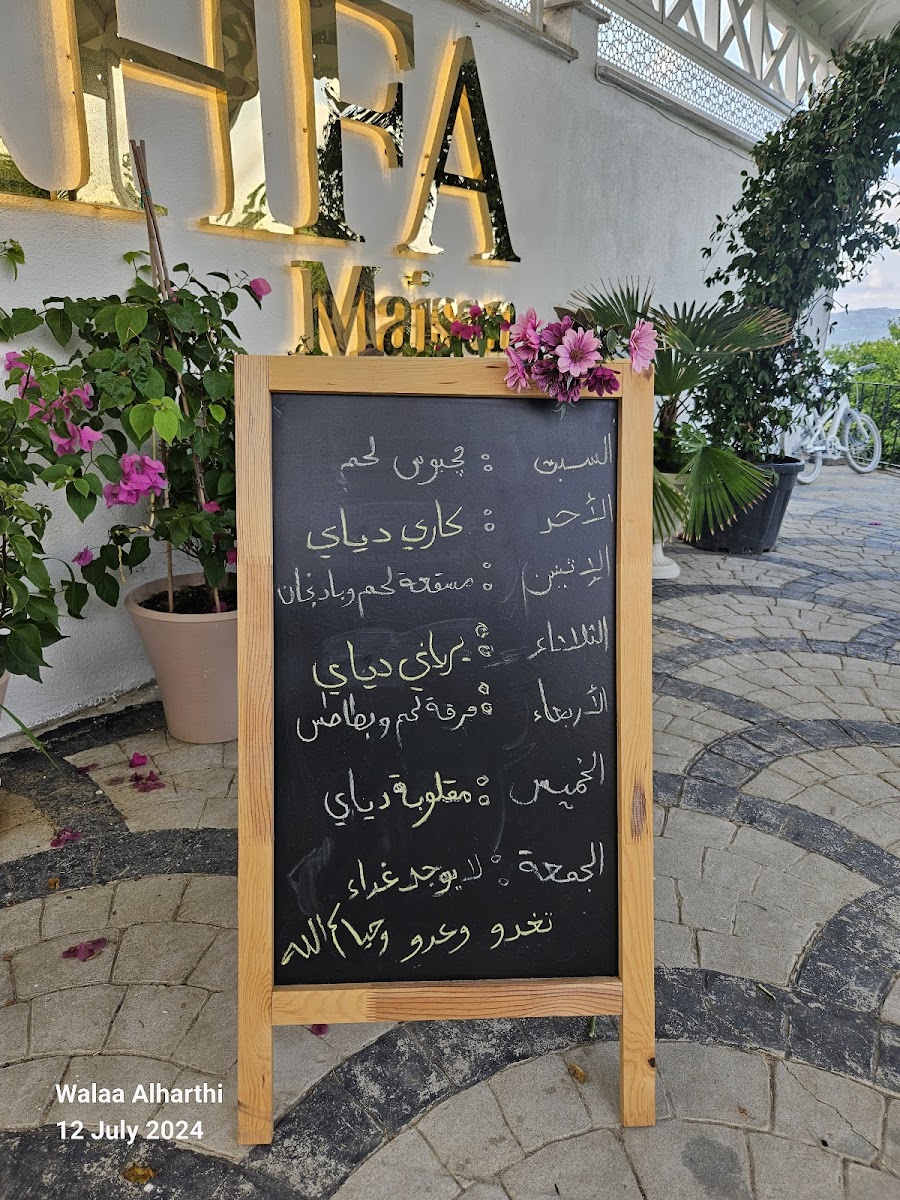 HFA
Maison
السبت : مچبوس لحم
الأحد : كاري دياي
الإثنين : مسقعة لحم وباذنجان
الثلاثاء : برياني دياي
الأربعاء : مرقة لحم وبطاطس
الخميس : مقلوبة دياي
الجمعة : لا يوجد غداء
تغدو وعدو وحياكم الله
Walaa Alharthi
12 July 2024